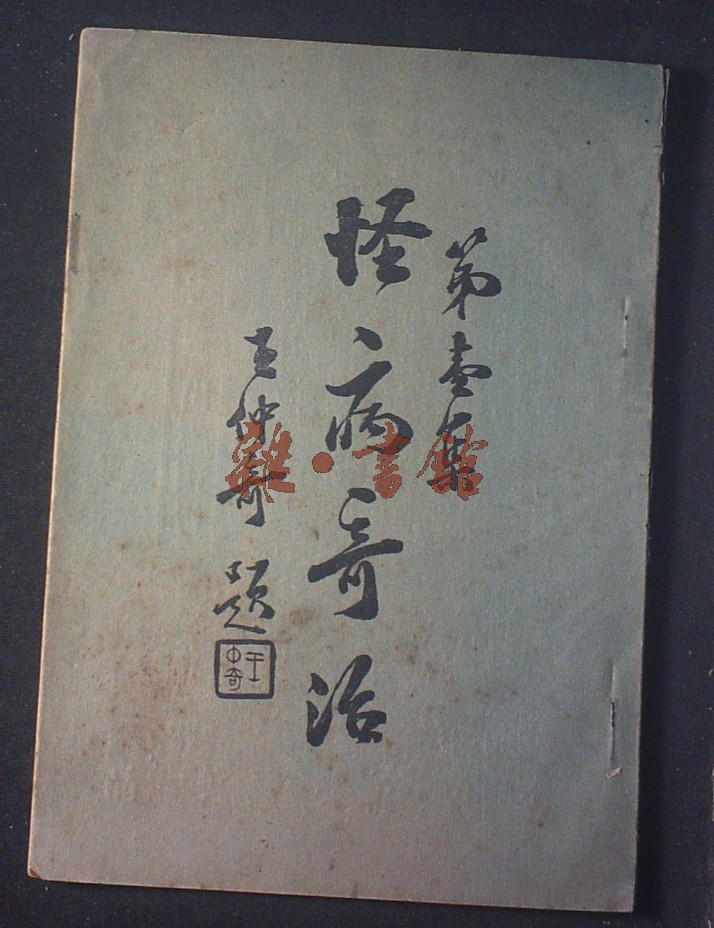 第壹集
怪病奇治
王仲奇題
王仲奇
書館